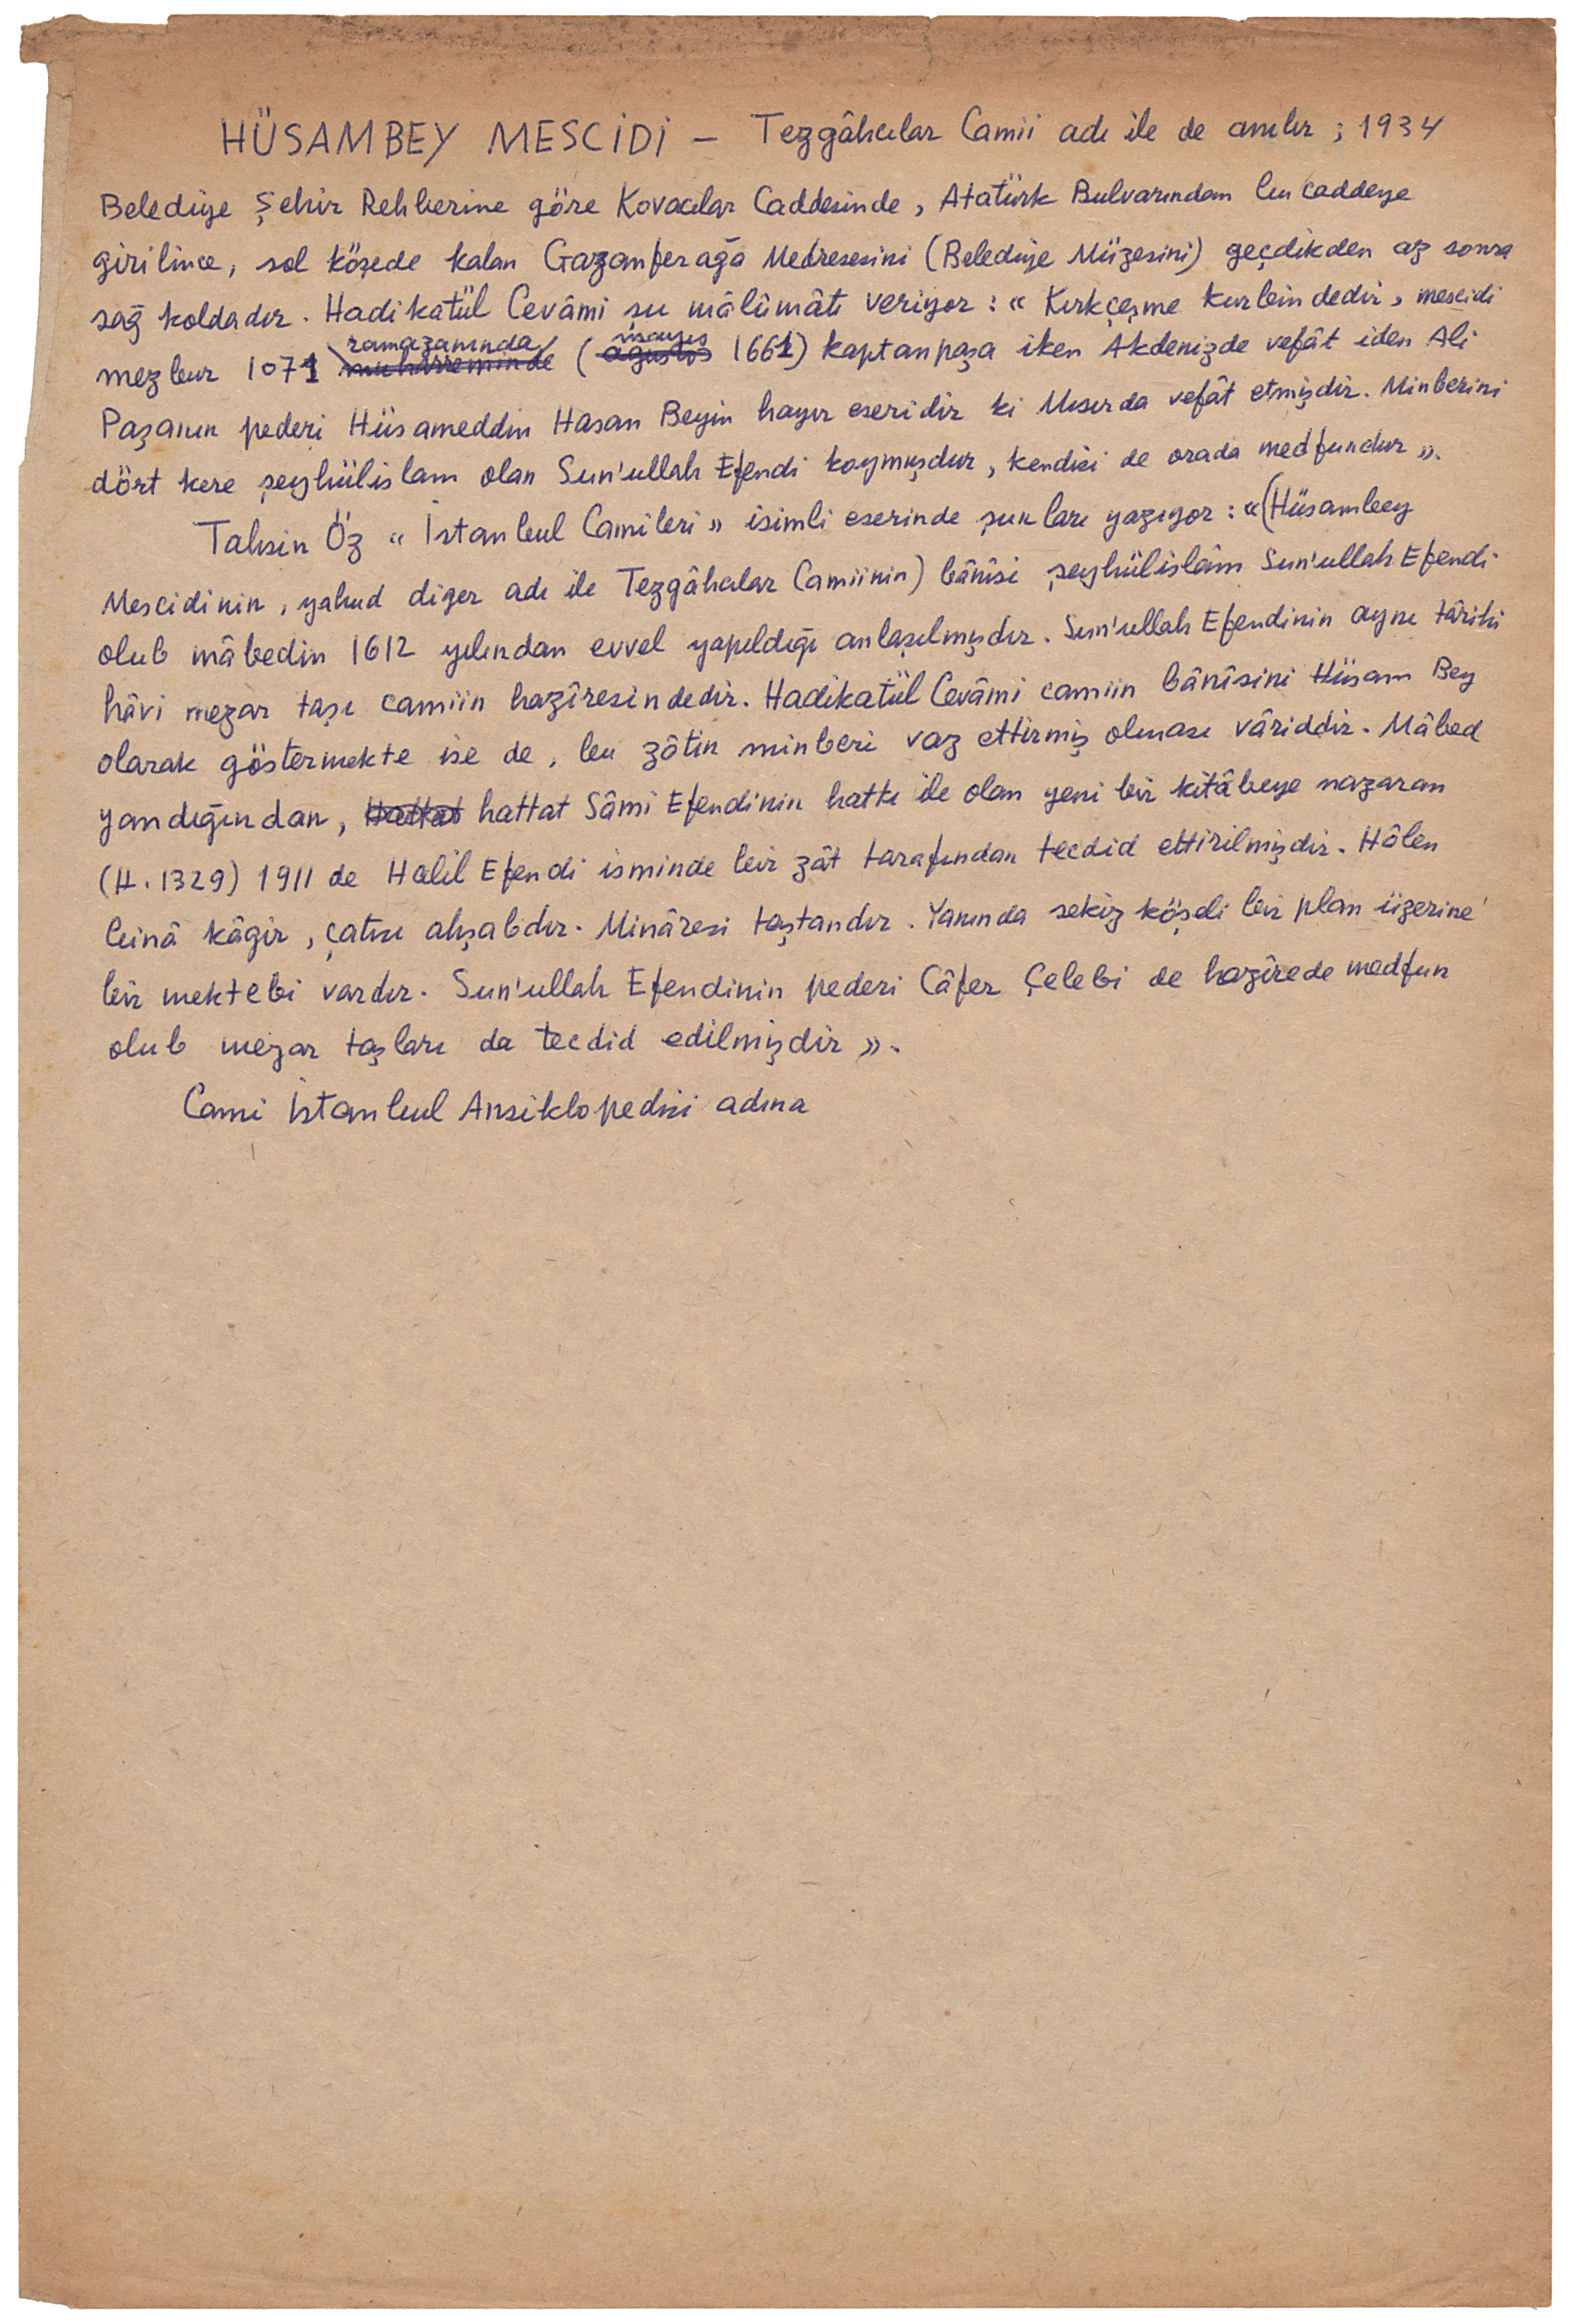 HÜSAMBEY MESCİDİ — Tezgâhcılar Camii adı ile de anılır ; 1934
Belediye Şehir Rehberine göre Kovacılar Caddesinde, Atatürk Bulvarından bu caddeye
girilince, sol köşede kalan Gazanferağa Medresesini (Belediye Müzesini) geçdikden az sonra
sağ koldadır. Hadikatül Cevâmi şu mâlûmâtı veriyor : « Kırkçeşme kurbindedir, mescidi
mezbur 1071 ramazanında muharreminde ( mayıs ağustos 1661) kaptanpaşa iken Akdenizde vefât iden Ali
Paşanın pederi Hüsameddin Hasan Beyin hayır eseridir ki Mısırda vefât etmişdir. Minberini
dört kere şeyhülislam olan Sun'ullah Efendi koymuşdur, kendisi de orada medfundur ».
Tahsin Öz « İstanbul Camileri » isimli eserinde şunları yazıyor : «(Hüsambey
Mescidinin, yahud diger adı ile Tezgâhcılar Camiinin) bânîsi şeyhülislâm Sun'ullah Efendi
olub mâbedin 1612 yılından evvel yapıldığı anlaşılmışdır. Sun'ullah Efendinin aynı târihi
hâvi mezar taşı camiin hazîresindedir. Hadikatül Cevâmi camiin bânîsini Hüsam Bey
olarak göstermekte ise de, bu zâtin minberi vaz ettirmiş olması vâriddir. Mâbed
yandığından, Hattat hattat Sâmi Efendinin hattı ile olan yeni bir kitâbeye nazaran
(H. 1329) 1911 de Halil Efendi isminde bir zât tarafından tecdid ettirilmişdir. Hâlen
binâ kâgir, çatısı ahşabdır. Minâresi taştandır. Yanında sekiz köşeli bir plan üzerine
bir mektebi vardır. Sun'ullah Efendinin pederi Câfer Çelebi de hazîrede medfun
olub mezar taşları da tecdid edilmişdir ».
Cami İstanbul Ansiklopedisi adına